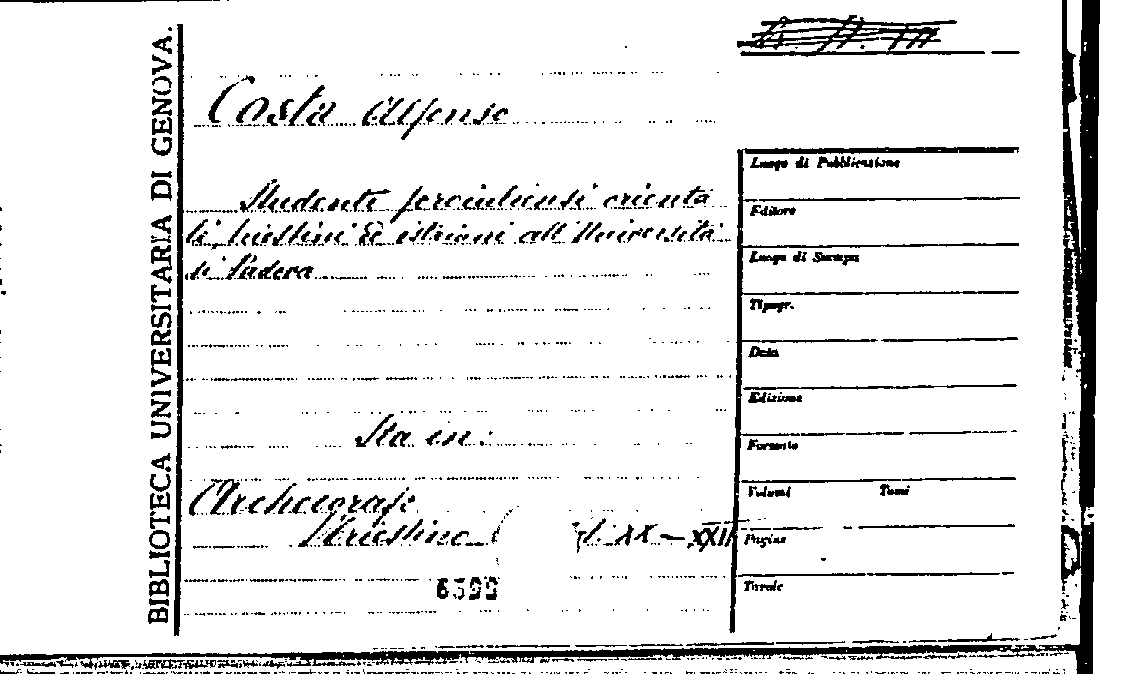 BIBLIOTECA UNIVERSITARIA DI GENOVA.
Costa Alfonso
Studenti foroiuliensi orienta
li, triestini ed istriani all'Università
di Padova.
Sta in:
Archeografo
Triestino XX-XXII
6399
Luogo di Pubblicazione
Editore
Luogo di Stampa
Tipogr.
Data
Edizione
Formato
Volumi Tomi
Pagine
Tavole